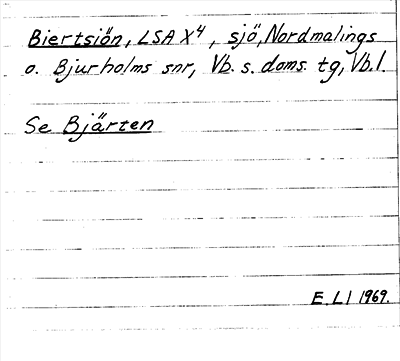 Biertsiön, LSA X4, sjö, Nordmalings
o. Bjurholms snr, Vb. s. doms. tg, Vb. l.
Se Bjärten
E. L l 1969.